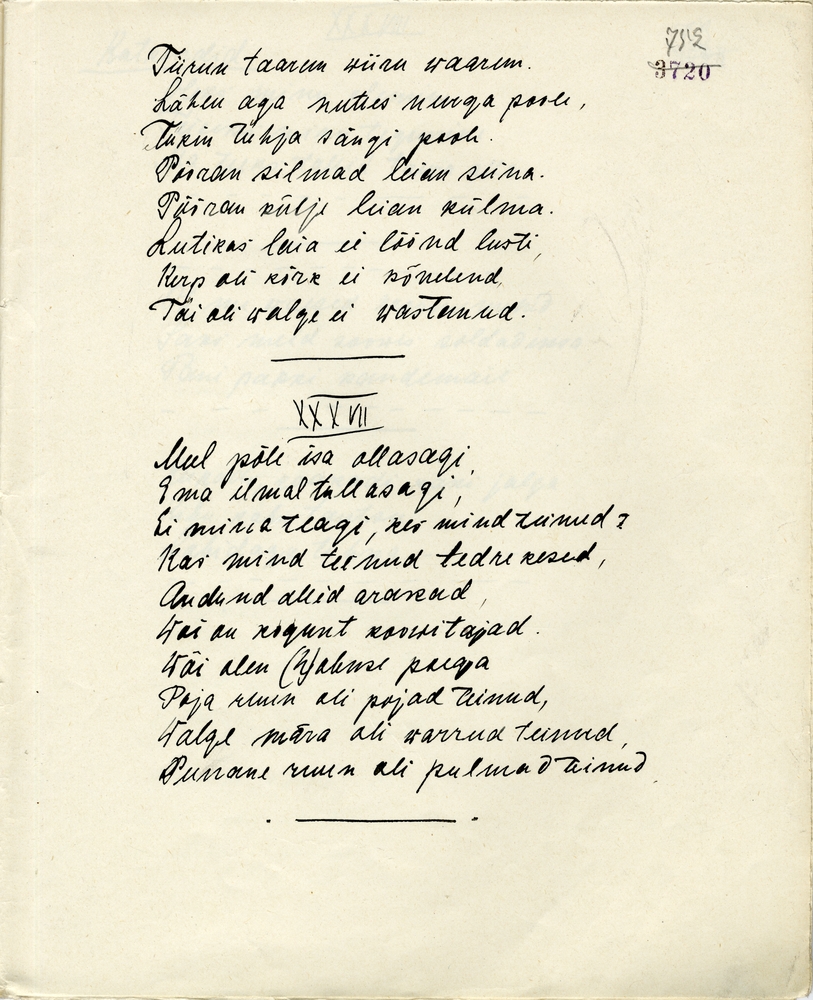 752
3720
Tiirun taarun wiiru waarun.
Lähen aga nuttes nurga poole,
Tukin tühja sängi poole.
Pööran silmad leian seina.
Pööran külje leian külma.
Lutikas laia ei löönd lusti,
Kirp oli kõrk ei kõnelend,
Täi oli walge ei wastanud.
XXXVII
Mul põle isa ollasagi,
Ema ilmal tullasagi,
Ei mina teagi, kes mind teinud?
Kas mind teenud tedrekesed,
Andund allid arakad,
Wõi on kogunt koowitajad.
Wõi olen (h)obuse poega
Poja ruun oli pojad teinud,
Walge mära oli warrud teinud,
Punane ruun oli pulmad teinud.